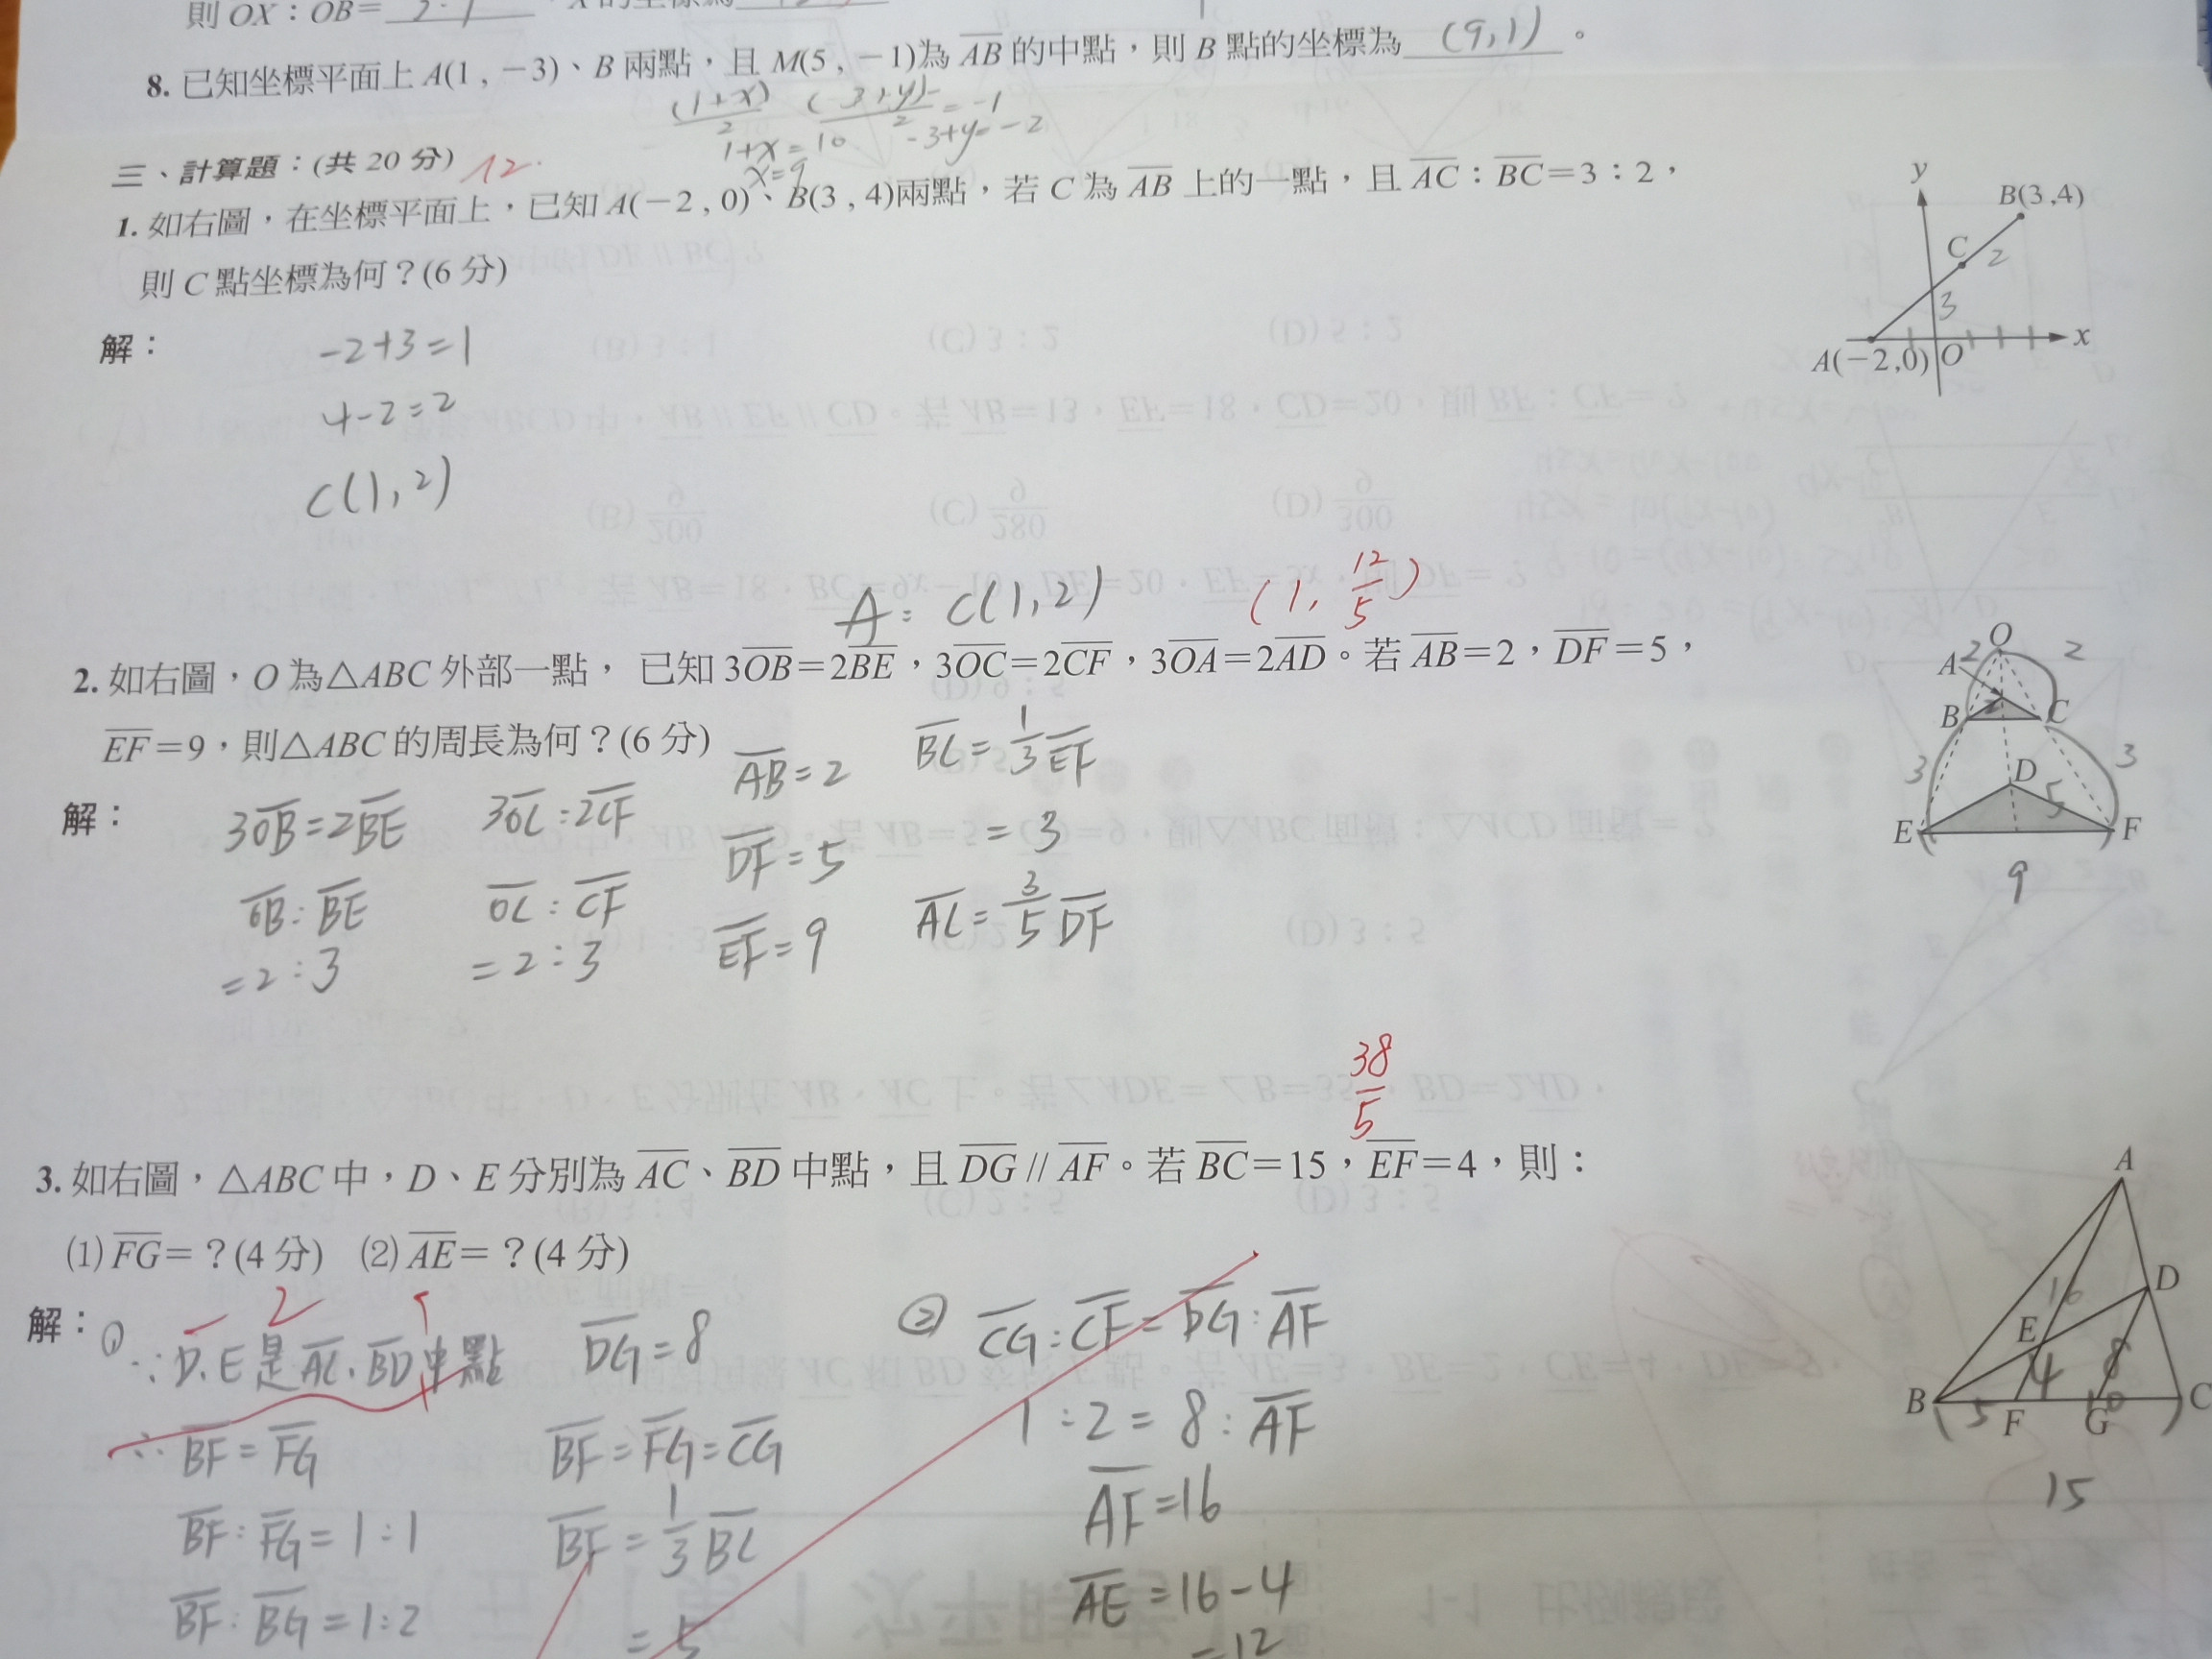 則 OX：OB＝ 2:1
8. 已知坐標平面上 A(1 , －3)、B 兩點，且 M(5 , －1)為 AB 的中點，則 B 點的坐標為 (9,1) 。
(1+x)/2 (-3+y)/2 = -1
1+x = 10 -3+y=-2
x=9
三、計算題：(共 20 分) 12
1. 如右圖，在坐標平面上，已知 A(－2 , 0)、B(3 , 4)兩點，若 C 為 AB 上的一點，且 AC：BC＝3：2，
則 C 點坐標為何？(6 分)
y
B(3 ,4)
C
2
3
A(－2 ,0) O x
解：
-2+3=1
4-2=2
C(1,2)
A: C(1,2) (1, 12/5)
2. 如右圖，O 為△ABC 外部一點， 已知 3OB＝2BE，3OC＝2CF，3OA＝2AD。若 AB＝2，DF＝5，
EF＝9，則△ABC 的周長為何？(6 分)
O
A 2 2
B 2 C
3 3
D
5
E F
9
解：
3OB=2BE 3OC=2CF AB=2 BC=1/3 EF
OB:BE OC:CF DF=5 =3
=2:3 =2:3 EF=9 AC=3/5 DF
38/5
3. 如右圖，△ABC 中，D、E 分別為 AC、BD 中點，且 DG // AF。若 BC＝15，EF＝4，則：
(1) FG＝？(4 分) (2) AE＝？(4 分)
A
D
16
E
4 8
B 5 F G 10 C
15
解：
① ∵D.E是AC.BD中點 DG=8 ② CG:CF=DG:AF
∴BF=FG BF=FG=CG 1:2=8:AF
BF:FG=1:1 BF=1/3 BC AF=16
BF:BG=1:2 =5 AE=16-4
=12